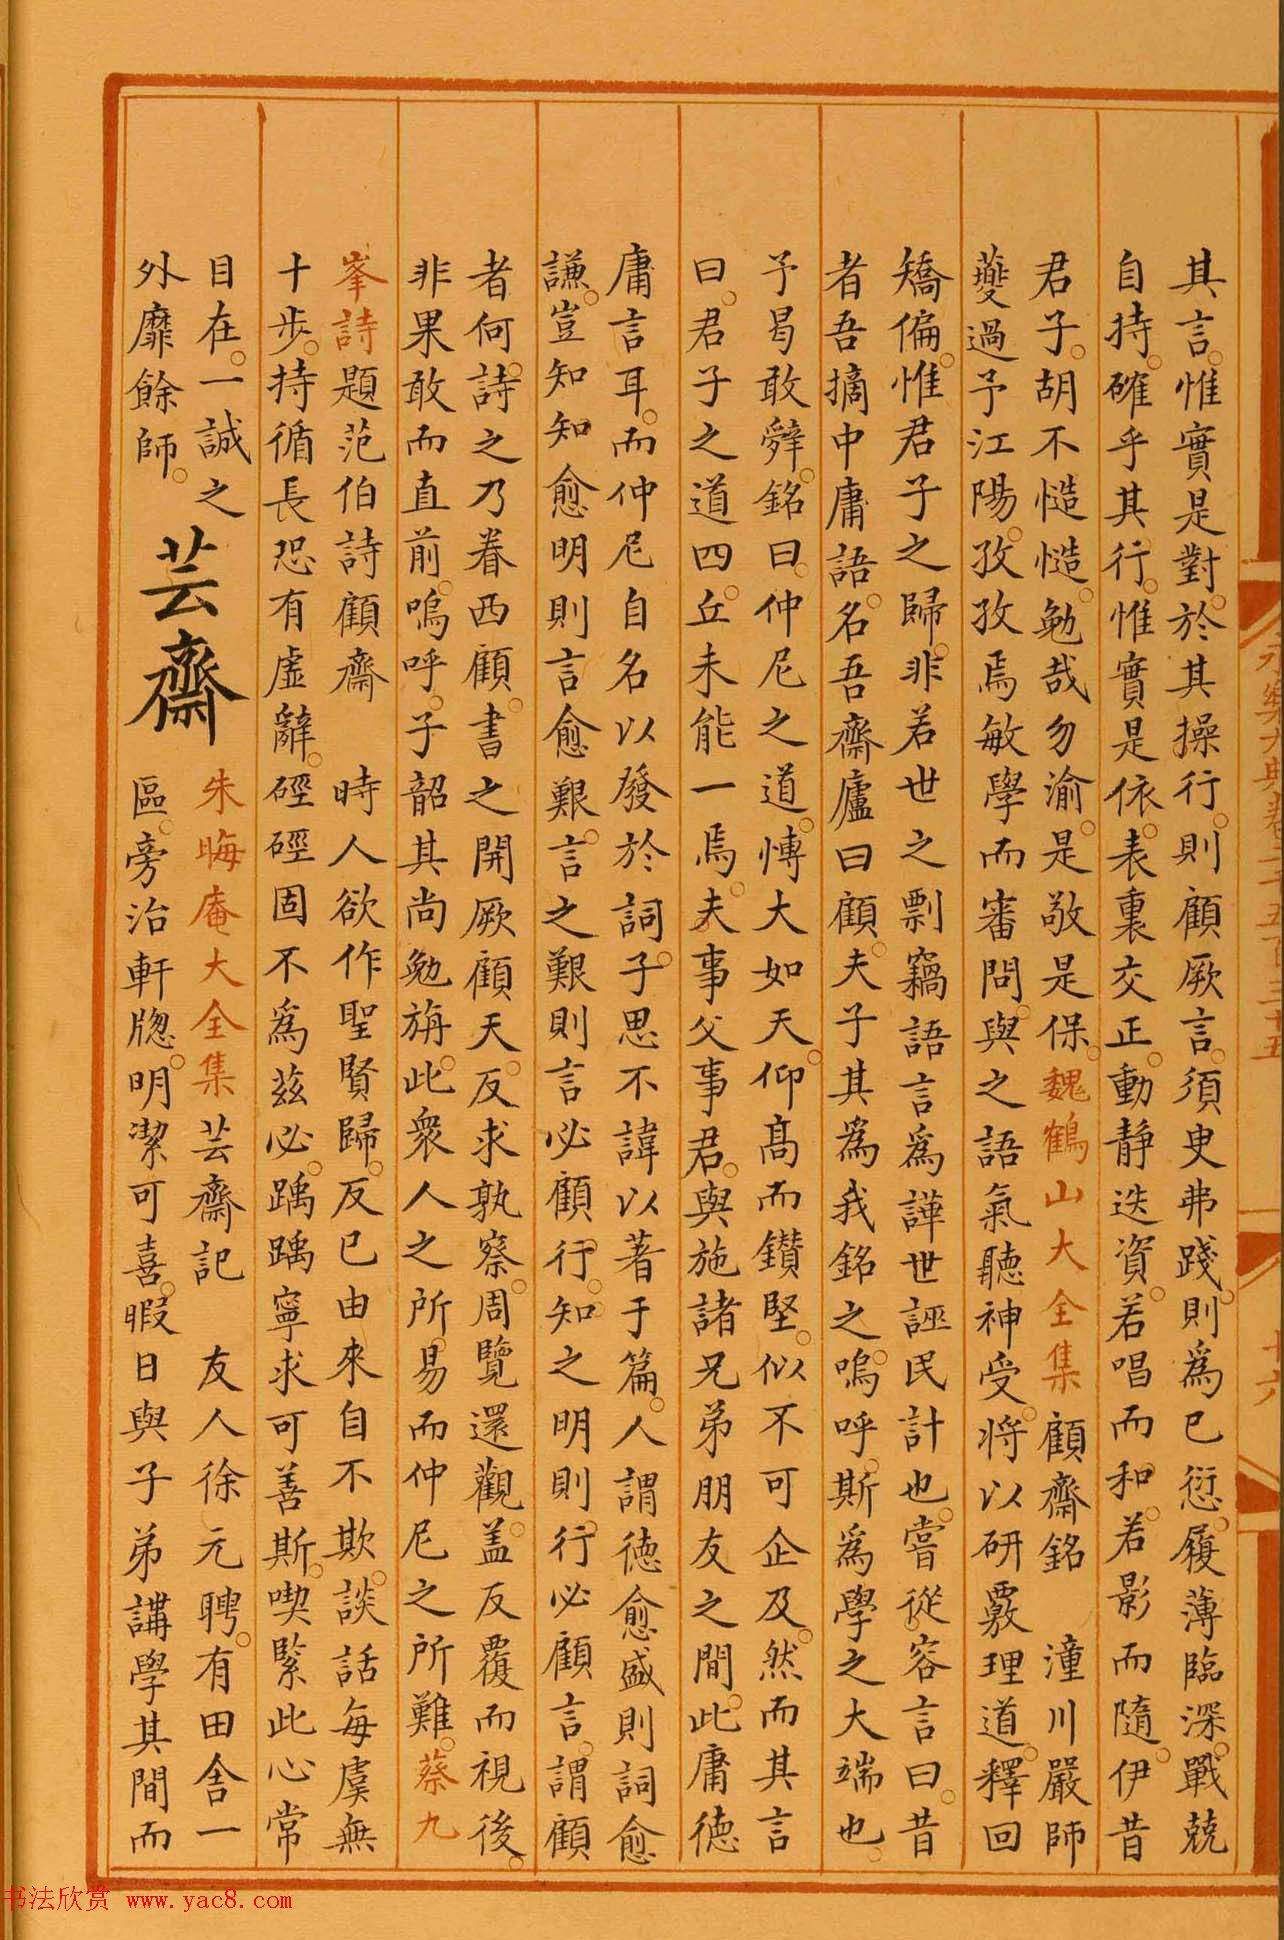 其言惟實是對於其操行則顧厥言須臾弗踐則為已愆履薄臨深戰兢
自持確乎其行惟實是依表裏交正動靜迭資若唱而和若影而隨伊昔
君子胡不慥慥勉哉勿渝是敬是保魏鶴山大全集 顧齋銘 潼川嚴師
夔過予江陽孜孜焉敏學而審問與之語氣聽神受將以研覈理道釋回
矯偏惟君子之歸非若世之剽竊語言為譁世誣民計也嘗從容言曰昔
者吾摘中庸語名吾齋廬曰顧夫子其為我銘之嗚呼斯為學之大端也
予曷敢辤銘曰仲尼之道慱大如天仰高而鑚堅似不可企及然而其言
曰君子之道四丘未能一焉夫事父事君與施諸兄弟朋友之間此庸徳
庸言耳而仲尼自名以發於詞子思不諱以著于篇人謂徳愈盛則詞愈
謙豈知知愈明則言愈艱言之艱則言必顧行知之明則行必顧言謂顧
者何詩之乃眷西顧書之開厥顧天反求孰察周覽還觀盖反覆而視後
非果敢而直前嗚呼子韶其尚勉旃此衆人之所易而仲尼之所難蔡九
峯詩題范伯詩顧齋 時人欲作聖賢歸反已由來自不欺談話每虞無
十步持循長恐有虛辭硜硜固不為茲必踽踽寧求可善斯喫緊此心常
目在一誠之
外靡餘師
芸齋
朱晦庵大全集芸齋記 友人徐元聘有田舍一
區旁治軒牎明潔可喜暇日與子弟講學其間而
永樂大典卷二千五百三十五
十六
书法欣赏 www.yac8.com